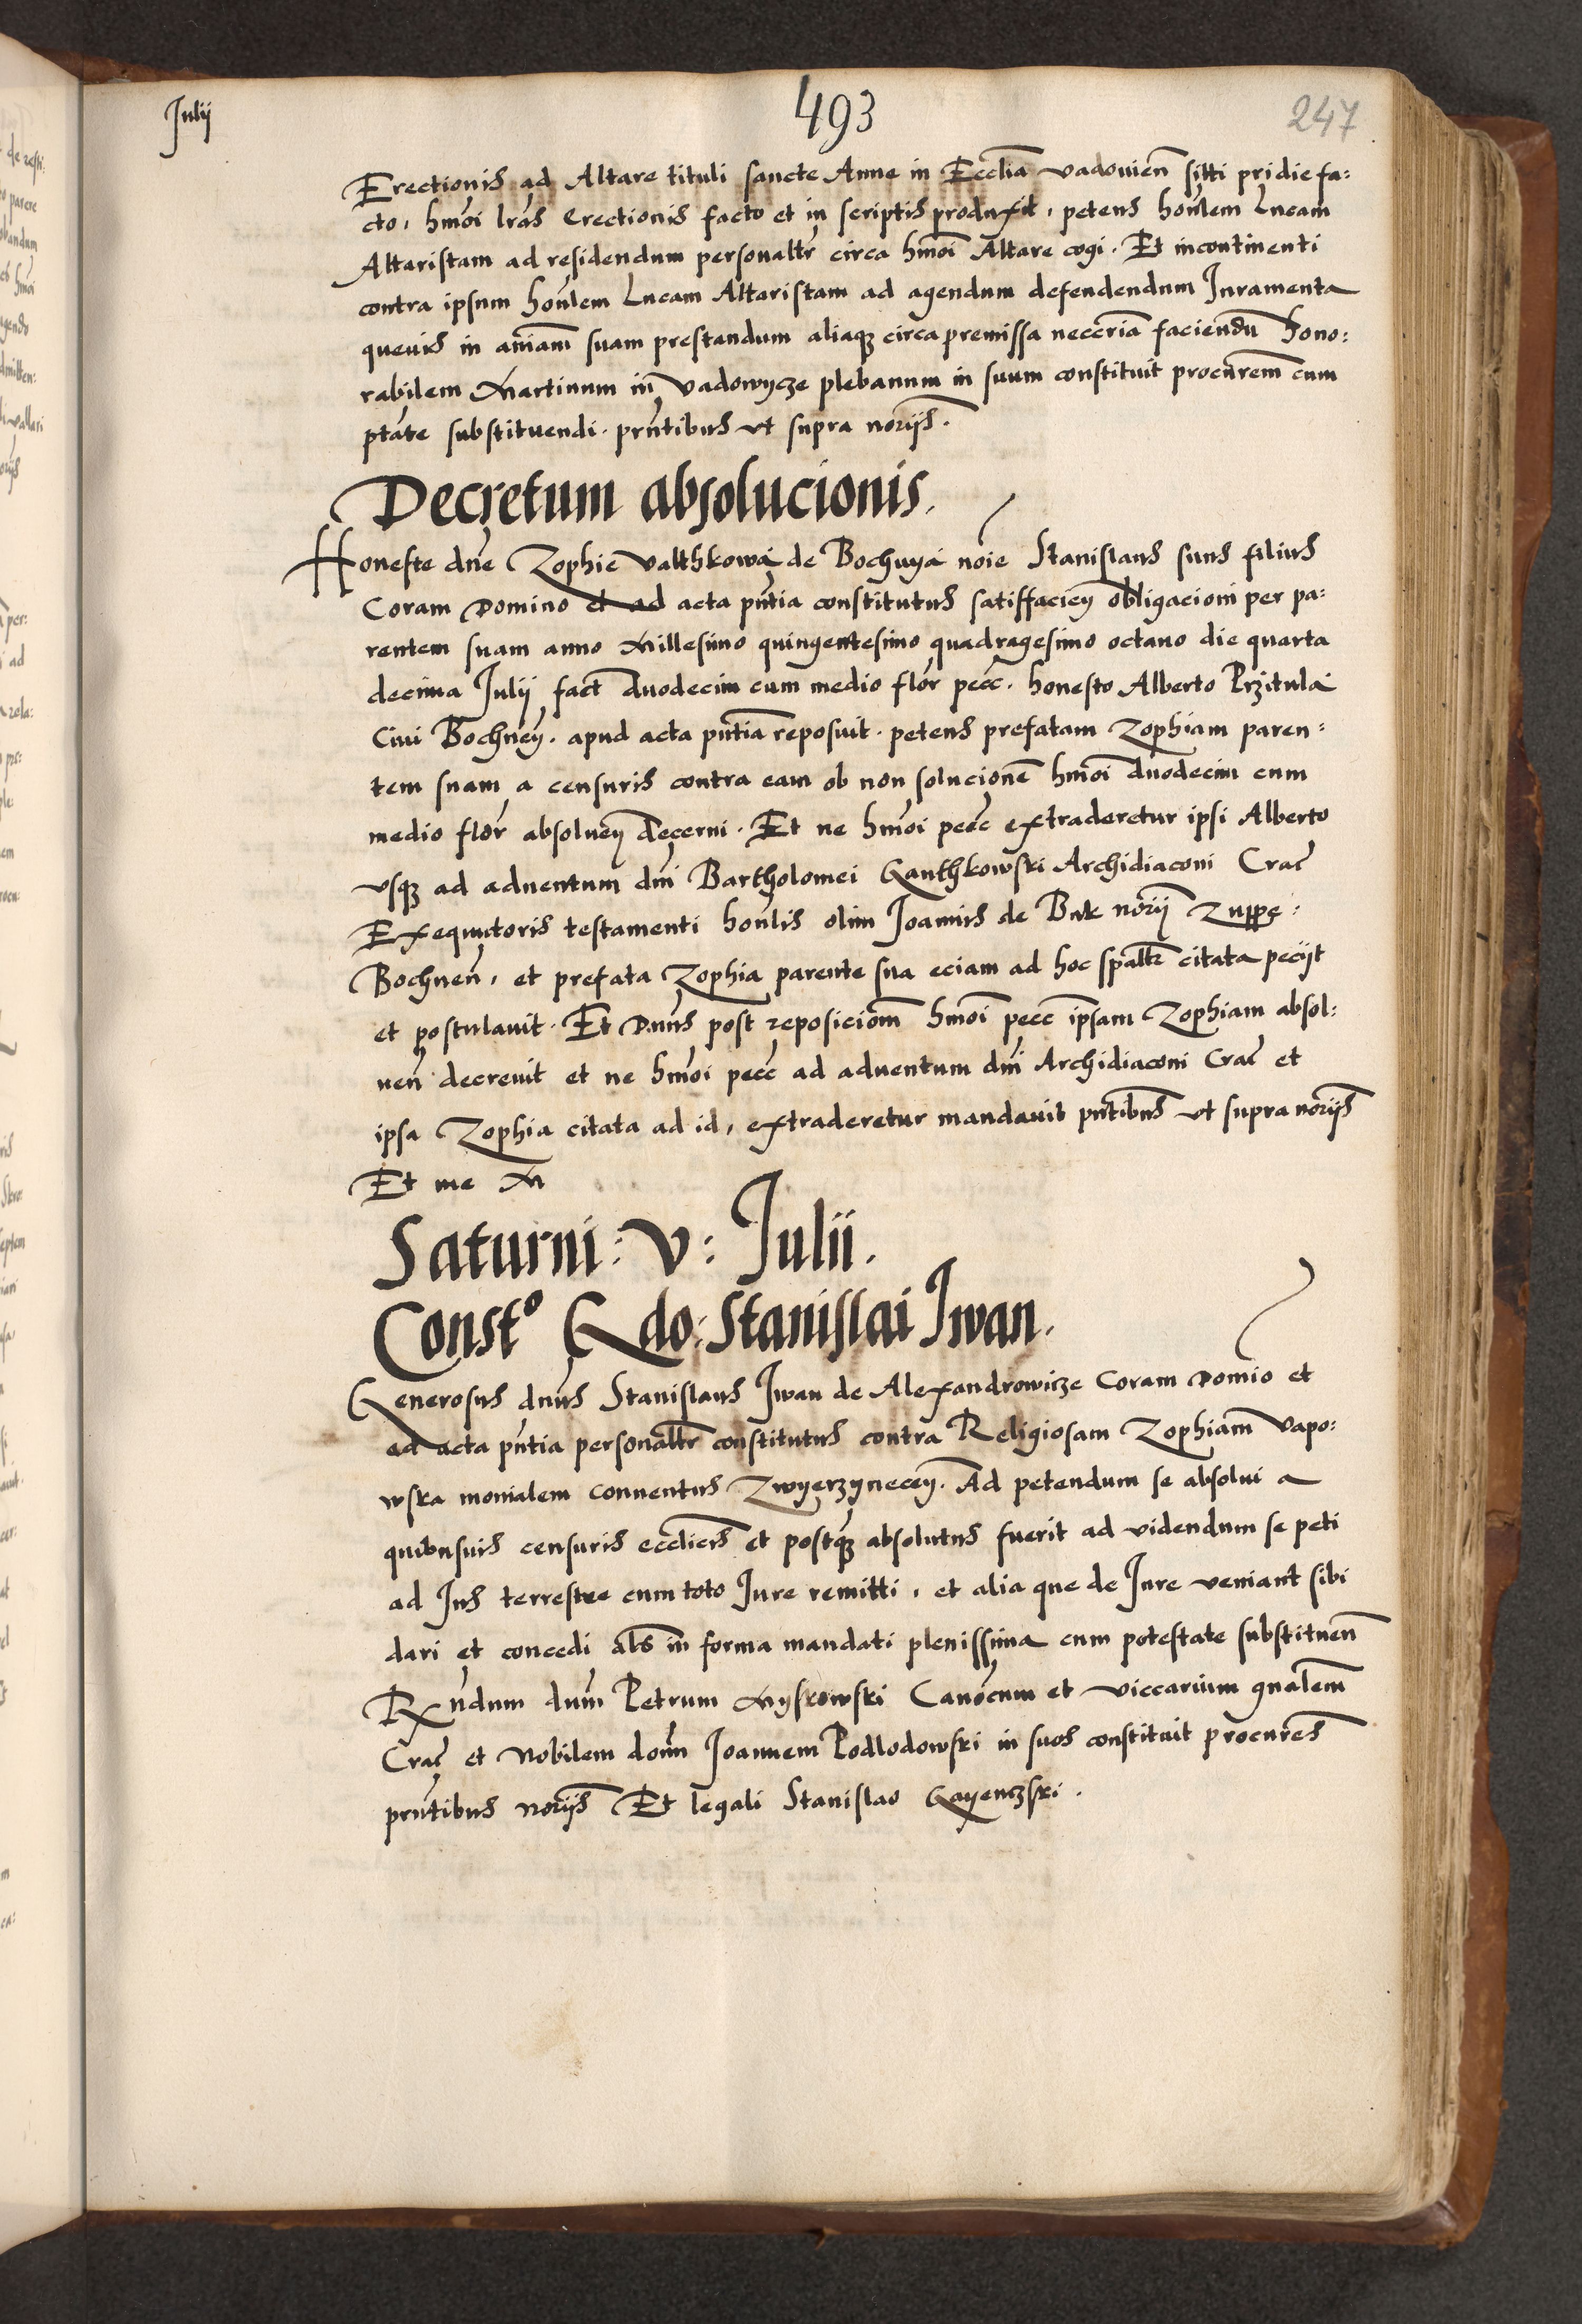 Julii
493
247
Erectionis ad Altare tituli sancte Anne in Ecclia vadovien sitti pridie fa:
cto, hmoi lras Erectionis facto et in scriptis produxit, petens honlem Lucam
Altaristam ad residendum personaltr circa hmoi Altare cogi. Et incontinenti
contra ipsum honlem Lucam Altaristam ad agendum defendendum Juramenta
quevis in aniam suam prestandum aliaqz circa premissa neccria faciendu hono:
rabilem Martinum in Vadowycze plebanum in suum constituit procurem cum
ptate substituendi. pntibus vt supra noriis.
Decretum absolucionis.
Honeste dne Zophie Valthkowa de Bochnya noie Stanislaus suus filius
Coram Domino et ad acta pntia constitutus satisfacien obligacioni per pa:
rentem suam anno Millesimo quingentesimo quadragesimo octauo die quarta
decima Julii fact duodecim cum medio flor pecc. honesto Alberto Przitula
Ciui Bochnen. apud acta pntia reposuit. petens prefatam Zophiam paren:
tem suam a censuris contra eam ob non solucione hmoi duodecim cum
medio flor absoluen decerni. Et ne hmoi pecc extraderetur ipsi Alberto
vsqz ad aduentum dni Bartholomei Ganthkowski Archidiaconi Crac
Exequutoris testamenti honlis olim Joannis de Buk norii Zuppe:
Bochnen, et prefata Zophia parente sua eciam ad hoc spaltr citata peciit
et postulauit. Et Dnus post reposiciom hmoi pecc ipsam Zophiam absol:
uen decreuit et ne hmoi pecc ad aduentum dni Archidiaconi Crac et
ipsa Zophia citata ad id, extraderetur mandauit pntibus vt supra noriis
Et me M
Saturni: V: Julii.
Consto Gdo: Stanislai Iwan.
Generosus dnus Stanislaus Iwan de Alexandrowicze Coram Domio et
ad acta pntia personaltr constitutus contra Religiosam Zophiam Vapo:
wska monialem conuentus Zwyerzynecen. Ad petendum se absolui a
quibusuis censuris ecclicis et postqz absolutus fuerit ad videndum se peti
ad Jus terrestre cum toto Jure remitti, et alia que de Jure veniant sibi
dari et concedi als in forma mandati plenissima cum potestate substituen
Rndum dnm Petrum Myskowski Canocum et viccarium gnalem
Crac et Nobilem domn Joannem Podlodowski in suos constituit procures
pntibus noriis Et legali Stanislao Gayenczski.